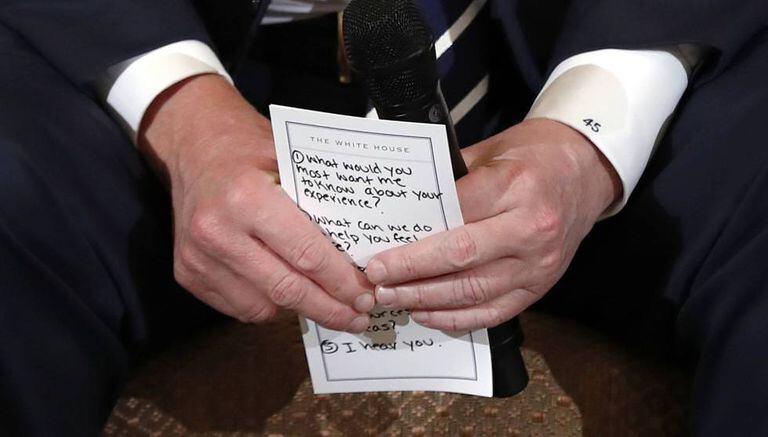 THE WHITE HOUSE
45
① What would you
most want me
to know about your
experience?
What can we do
help you feel
?
⑤ I hear you.